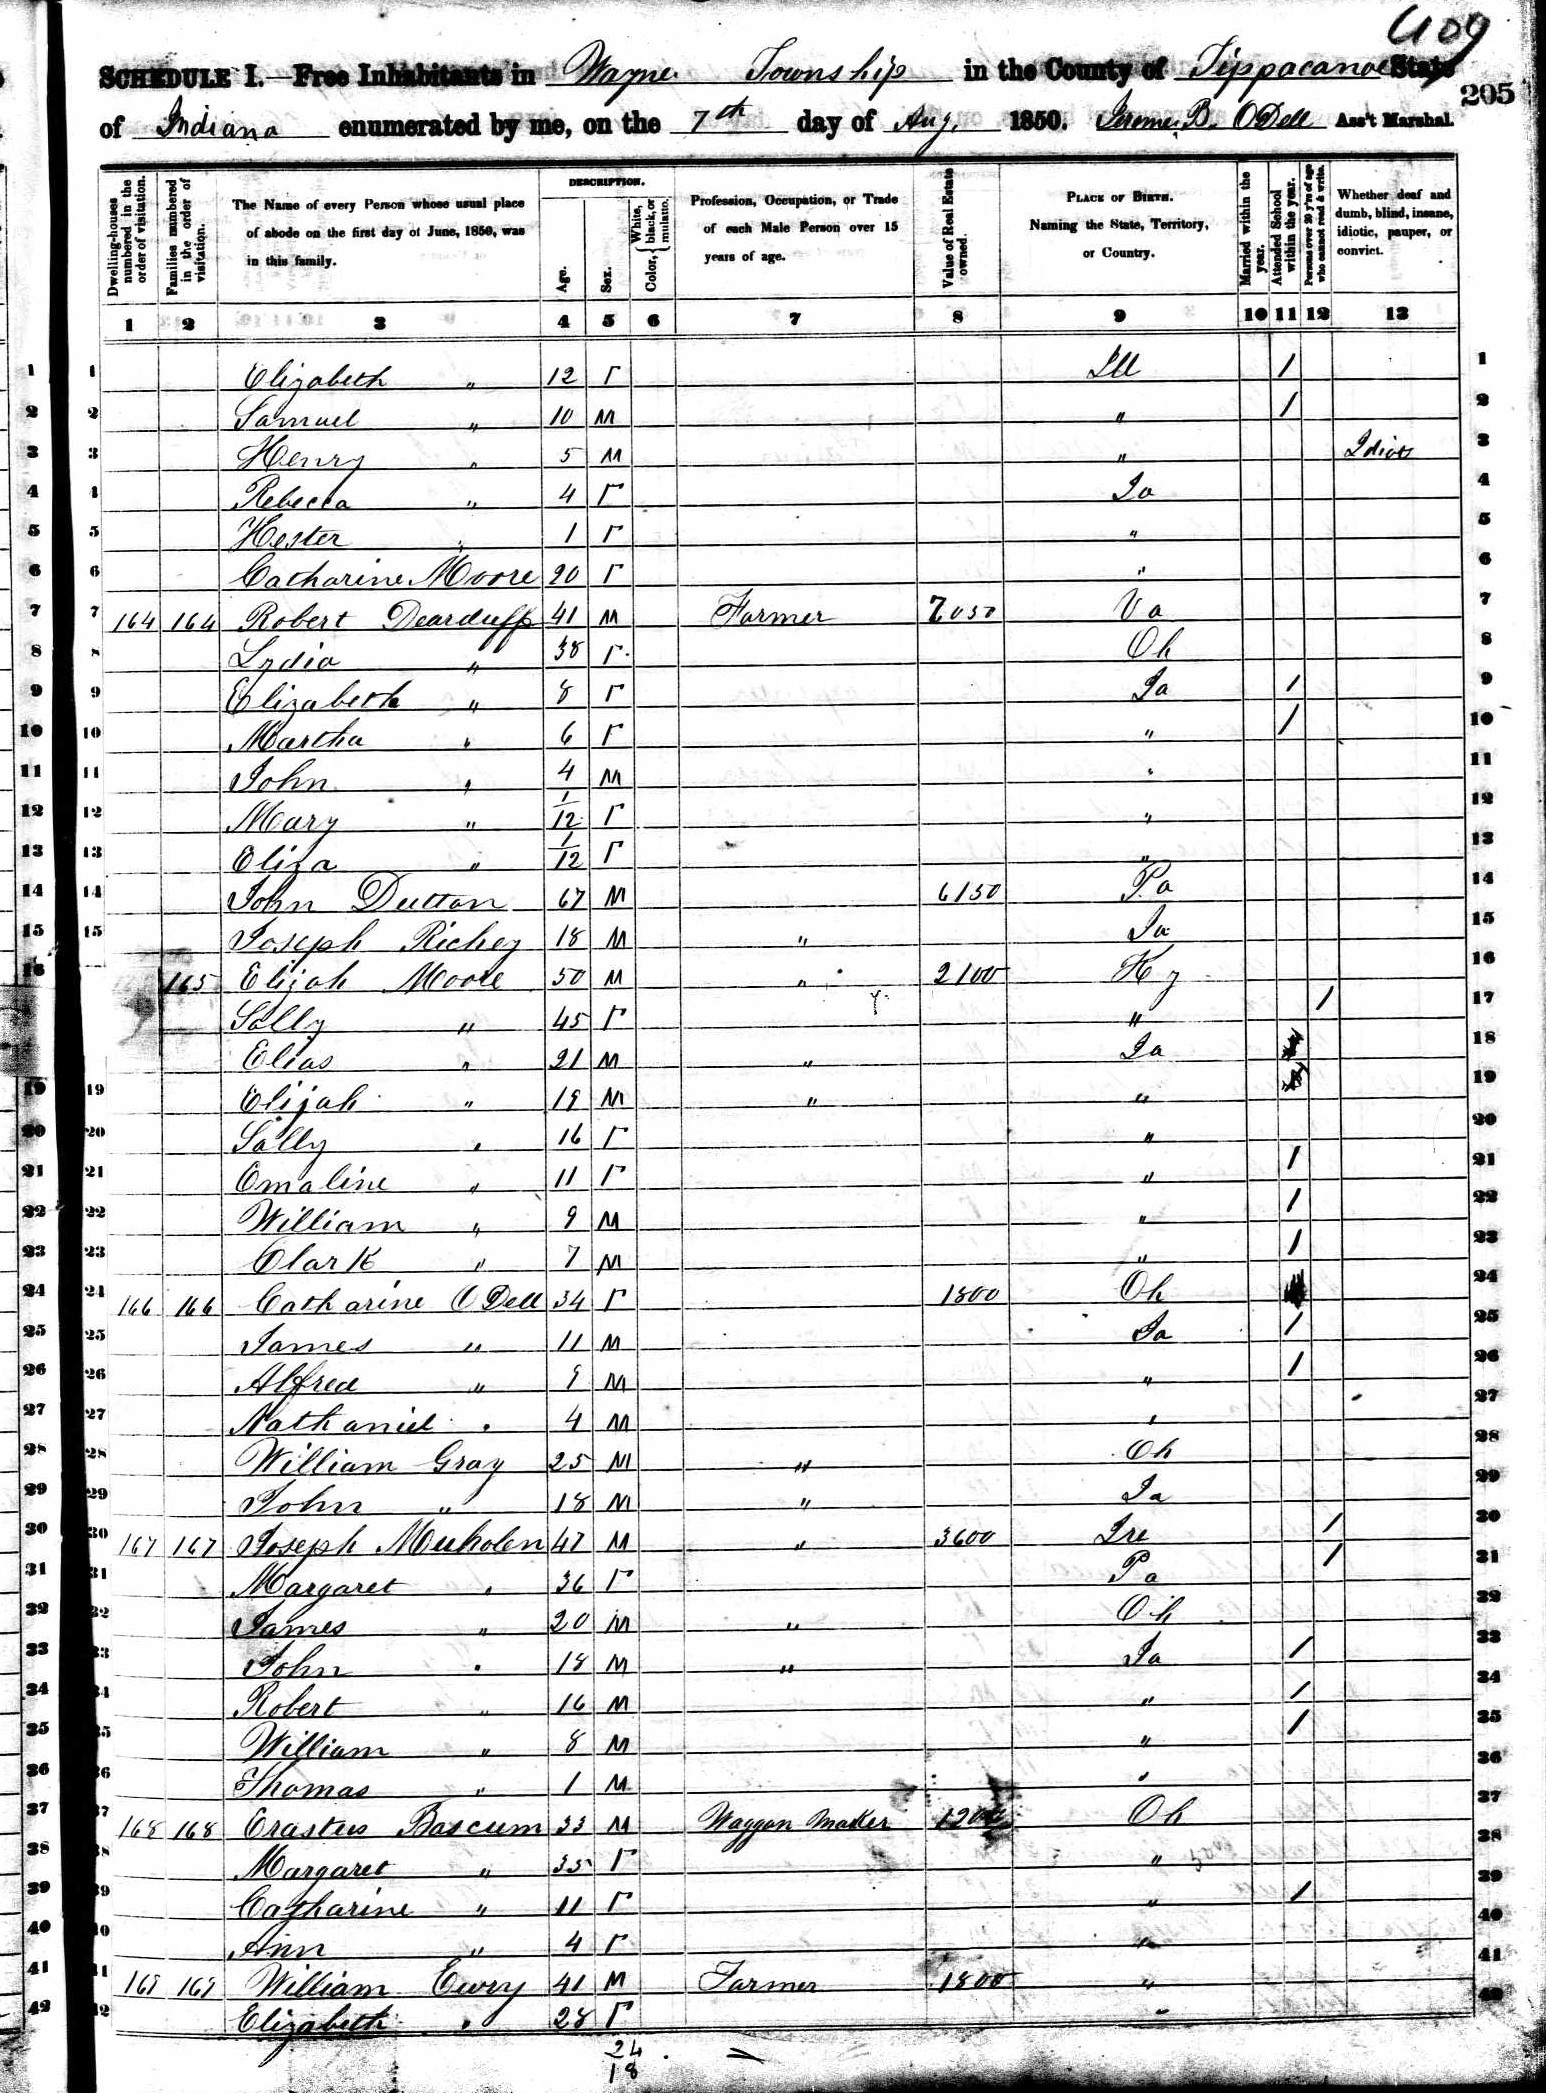 409
SCHEDULE I.—Free Inhabitants in Wayne Township in the County of Tippacanoe State
205
of Indiana enumerated by me, on the 7th day of Aug. 1850. Jerome B. ODell Ass't Marshal.
Dwelling-houses numbered in the order of visitation.
Families numbered in the order of visitation.
The Name of every Person whose usual place of abode on the first day of June, 1850, was in this family.
DESCRIPTION.
Age.
Sex.
Color, { White, black, or mulatto.
Profession, Occupation, or Trade of each Male Person over 15 years of age.
Value of Real Estate owned.
PLACE OF BIRTH. Naming the State, Territory, or Country.
Married within the year.
Attended School within the year.
Persons over 20 y'rs of age who cannot read & write.
Whether deaf and dumb, blind, insane, idiotic, pauper, or convict.
1 2 3 4 5 6 7 8 9 10 11 12 13
1 1 Elizabeth " 12 F Ill / 1
2 2 Samuel " 10 M " / 2
3 3 Henry " 5 M " Idiot 3
4 4 Rebecca " 4 F Ia 4
5 5 Hester " 1 F " 5
6 6 Catharine Moore 20 F " 6
7 7 164 164 Robert Dearduff 41 M Farmer 7050 Va 7
8 8 Lydia " 38 F Oh 8
9 9 Elizabeth " 8 F Ia / 9
10 10 Martha " 6 F " / 10
11 11 John " 4 M " 11
12 12 Mary " 1/12 F " 12
13 13 Eliza " 1/12 F " 13
14 14 John Dutton 67 M 6150 Pa 14
15 15 Joseph Richey 18 M " Ia 15
16 165 Elijah Moore 50 M " 2100 Ky 16
Sally " 45 F " / 17
Elias " 21 M " Ia 18
19 19 Elijah " 19 M " " 19
20 20 Sally " 16 F " 20
21 21 Emaline " 11 F " / 21
22 22 William " 9 M " / 22
23 23 Clark " 7 M " / 23
24 24 166 166 Catharine ODell 34 F 1800 Oh 24
25 25 James " 11 M Ia / 25
26 26 Alfred " 9 M " / 26
27 27 Nathaniel " 4 M " 27
28 28 William Gray 25 M " Oh 28
29 29 John " 18 M " Ia 29
30 30 167 167 Joseph 47 M " 3600 Ire / 30
31 31 Margaret " 36 F Pa / 31
32 32 James " 20 M " Oh 32
33 33 John " 18 M " Ia / 33
34 34 Robert " 16 M " / 34
35 35 William " 8 M " / 35
36 36 Thomas " 1 M " 36
37 37 168 168 Erastus Bascum 33 M Waggon Maker 1200 Oh 37
38 38 Margaret " 35 F " 38
39 39 Catharine " 11 F " / 39
40 40 Ann " 4 F " 40
41 41 169 169 William Ewry 41 M Farmer 1800 " 41
42 42 Elizabeth " 28 F " 42
24
18